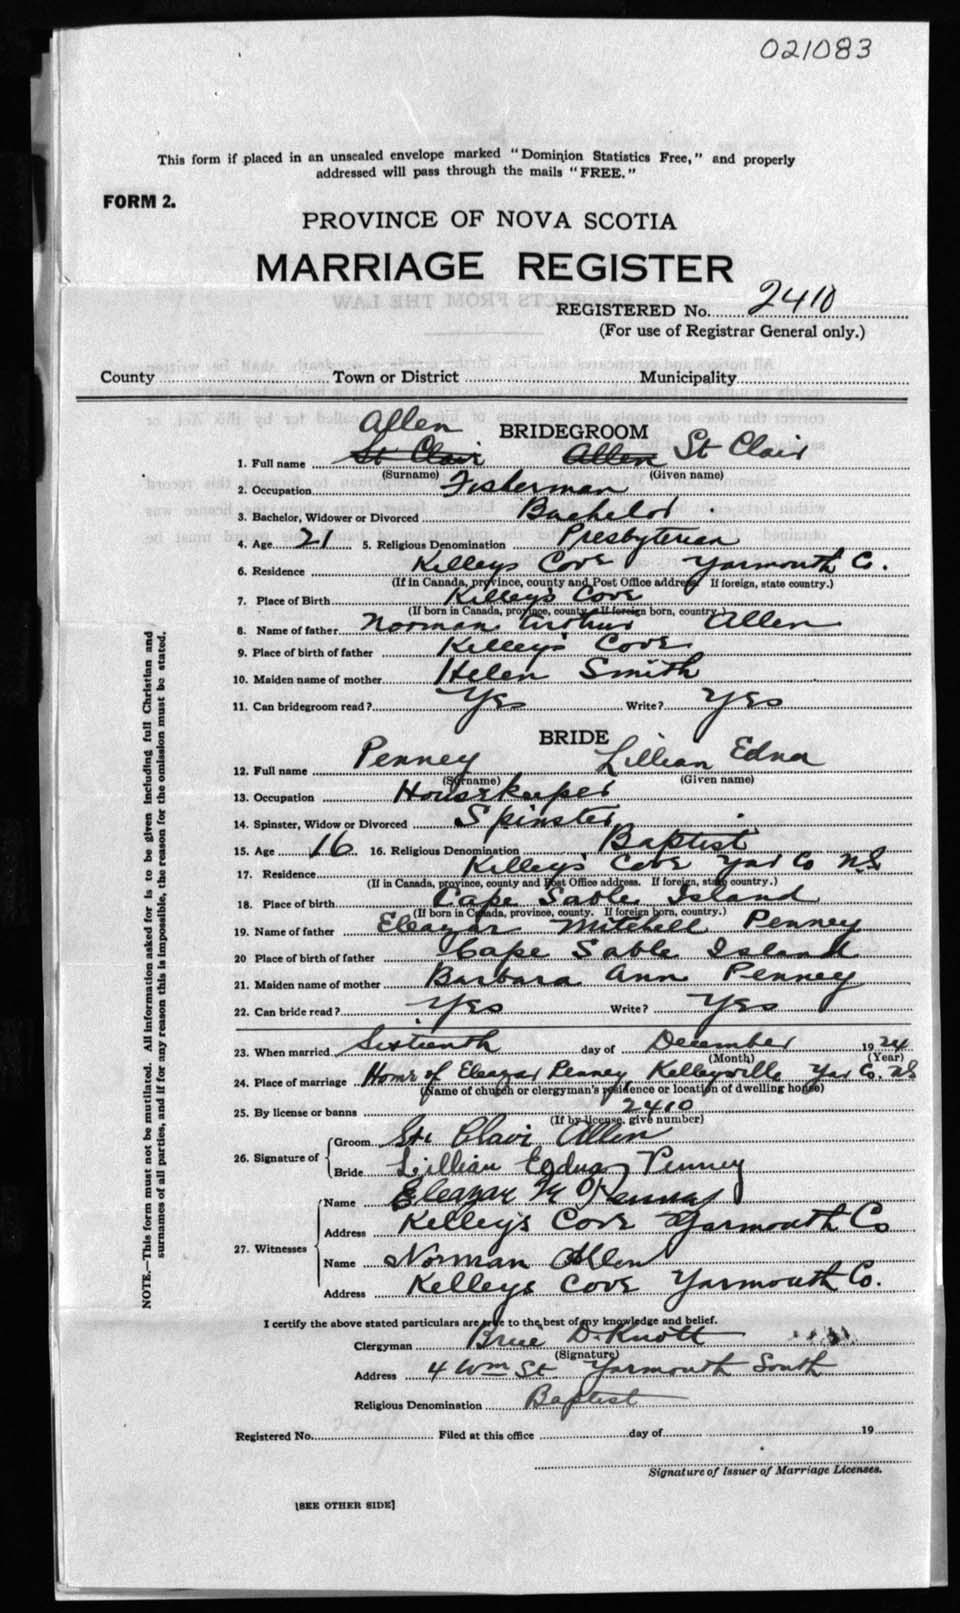 021083
This form if placed in an unsealed envelope marked "Dominion Statistics Free," and properly
addressed will pass through the mails "FREE."
FORM 2.
PROVINCE OF NOVA SCOTIA
MARRIAGE REGISTER
REGISTERED No. 2410
(For use of Registrar General only.)
County Town or District Municipality
Allen BRIDEGROOM
1. Full name St Clair Allen St Clair
(Surname) (Given name)
2. Occupation Fisherman
3. Bachelor, Widower or Divorced Bachelor
4. Age 21 5. Religious Denomination Presbyterian
6. Residence Killeys Cove Yarmouth Co.
(If in Canada, province, county and Post Office address. If foreign, state country.)
7. Place of Birth Killeys Cove
(If born in Canada, province, county. If foreign born, country.)
8. Name of father Norman Arthur Allen
9. Place of birth of father Killeys Cove
10. Maiden name of mother Helen Smith
11. Can bridegroom read? Yes Write? Yes
BRIDE
12. Full name Penney Lillian Edna
(Surname) (Given name)
13. Occupation Housekeeper
14. Spinster, Widow or Divorced Spinster
15. Age 16 16. Religious Denomination Baptist
17. Residence Killeys Cove Yar Co N.S.
(If in Canada, province, county and Post Office address. If foreign, state country.)
18. Place of birth Cape Sable Island
(If born in Canada, province, county. If foreign born, country.)
19. Name of father Eleazar Mitchell Penney
20 Place of birth of father Cape Sable Island
21. Maiden name of mother Barbara Ann Penney
22. Can bride read? Yes Write? Yes
23. When married Sixteenth day of December 1924
(Month) (Year)
24. Place of marriage Home of Eleazar Penney Kelleysville Yar Co. NS
(Name of church or clergyman's residence or location of dwelling house)
25. By license or banns 2410
(If by license, give number)
26. Signature of Groom St Clair Allen
Bride Lillian Edna Penney
27. Witnesses Name Eleazar M Penney
Address Kelley's Cove Yarmouth Co
Name Norman Allen
Address Kelleys Cove Yarmouth Co.
I certify the above stated particulars are true to the best of my knowledge and belief.
Clergyman Bruce D. Knott
(Signature)
Address 4 Wm St. Yarmouth South
Religious Denomination Baptist
Registered No. Filed at this office day of 19
Signature of Issuer of Marriage Licenses.
[SEE OTHER SIDE]
NOTE.—This form must not be mutilated. All information asked for is to be given including full Christian and
surnames of all parties, and if for any reason this is impossible, the reason for the omission must be stated.